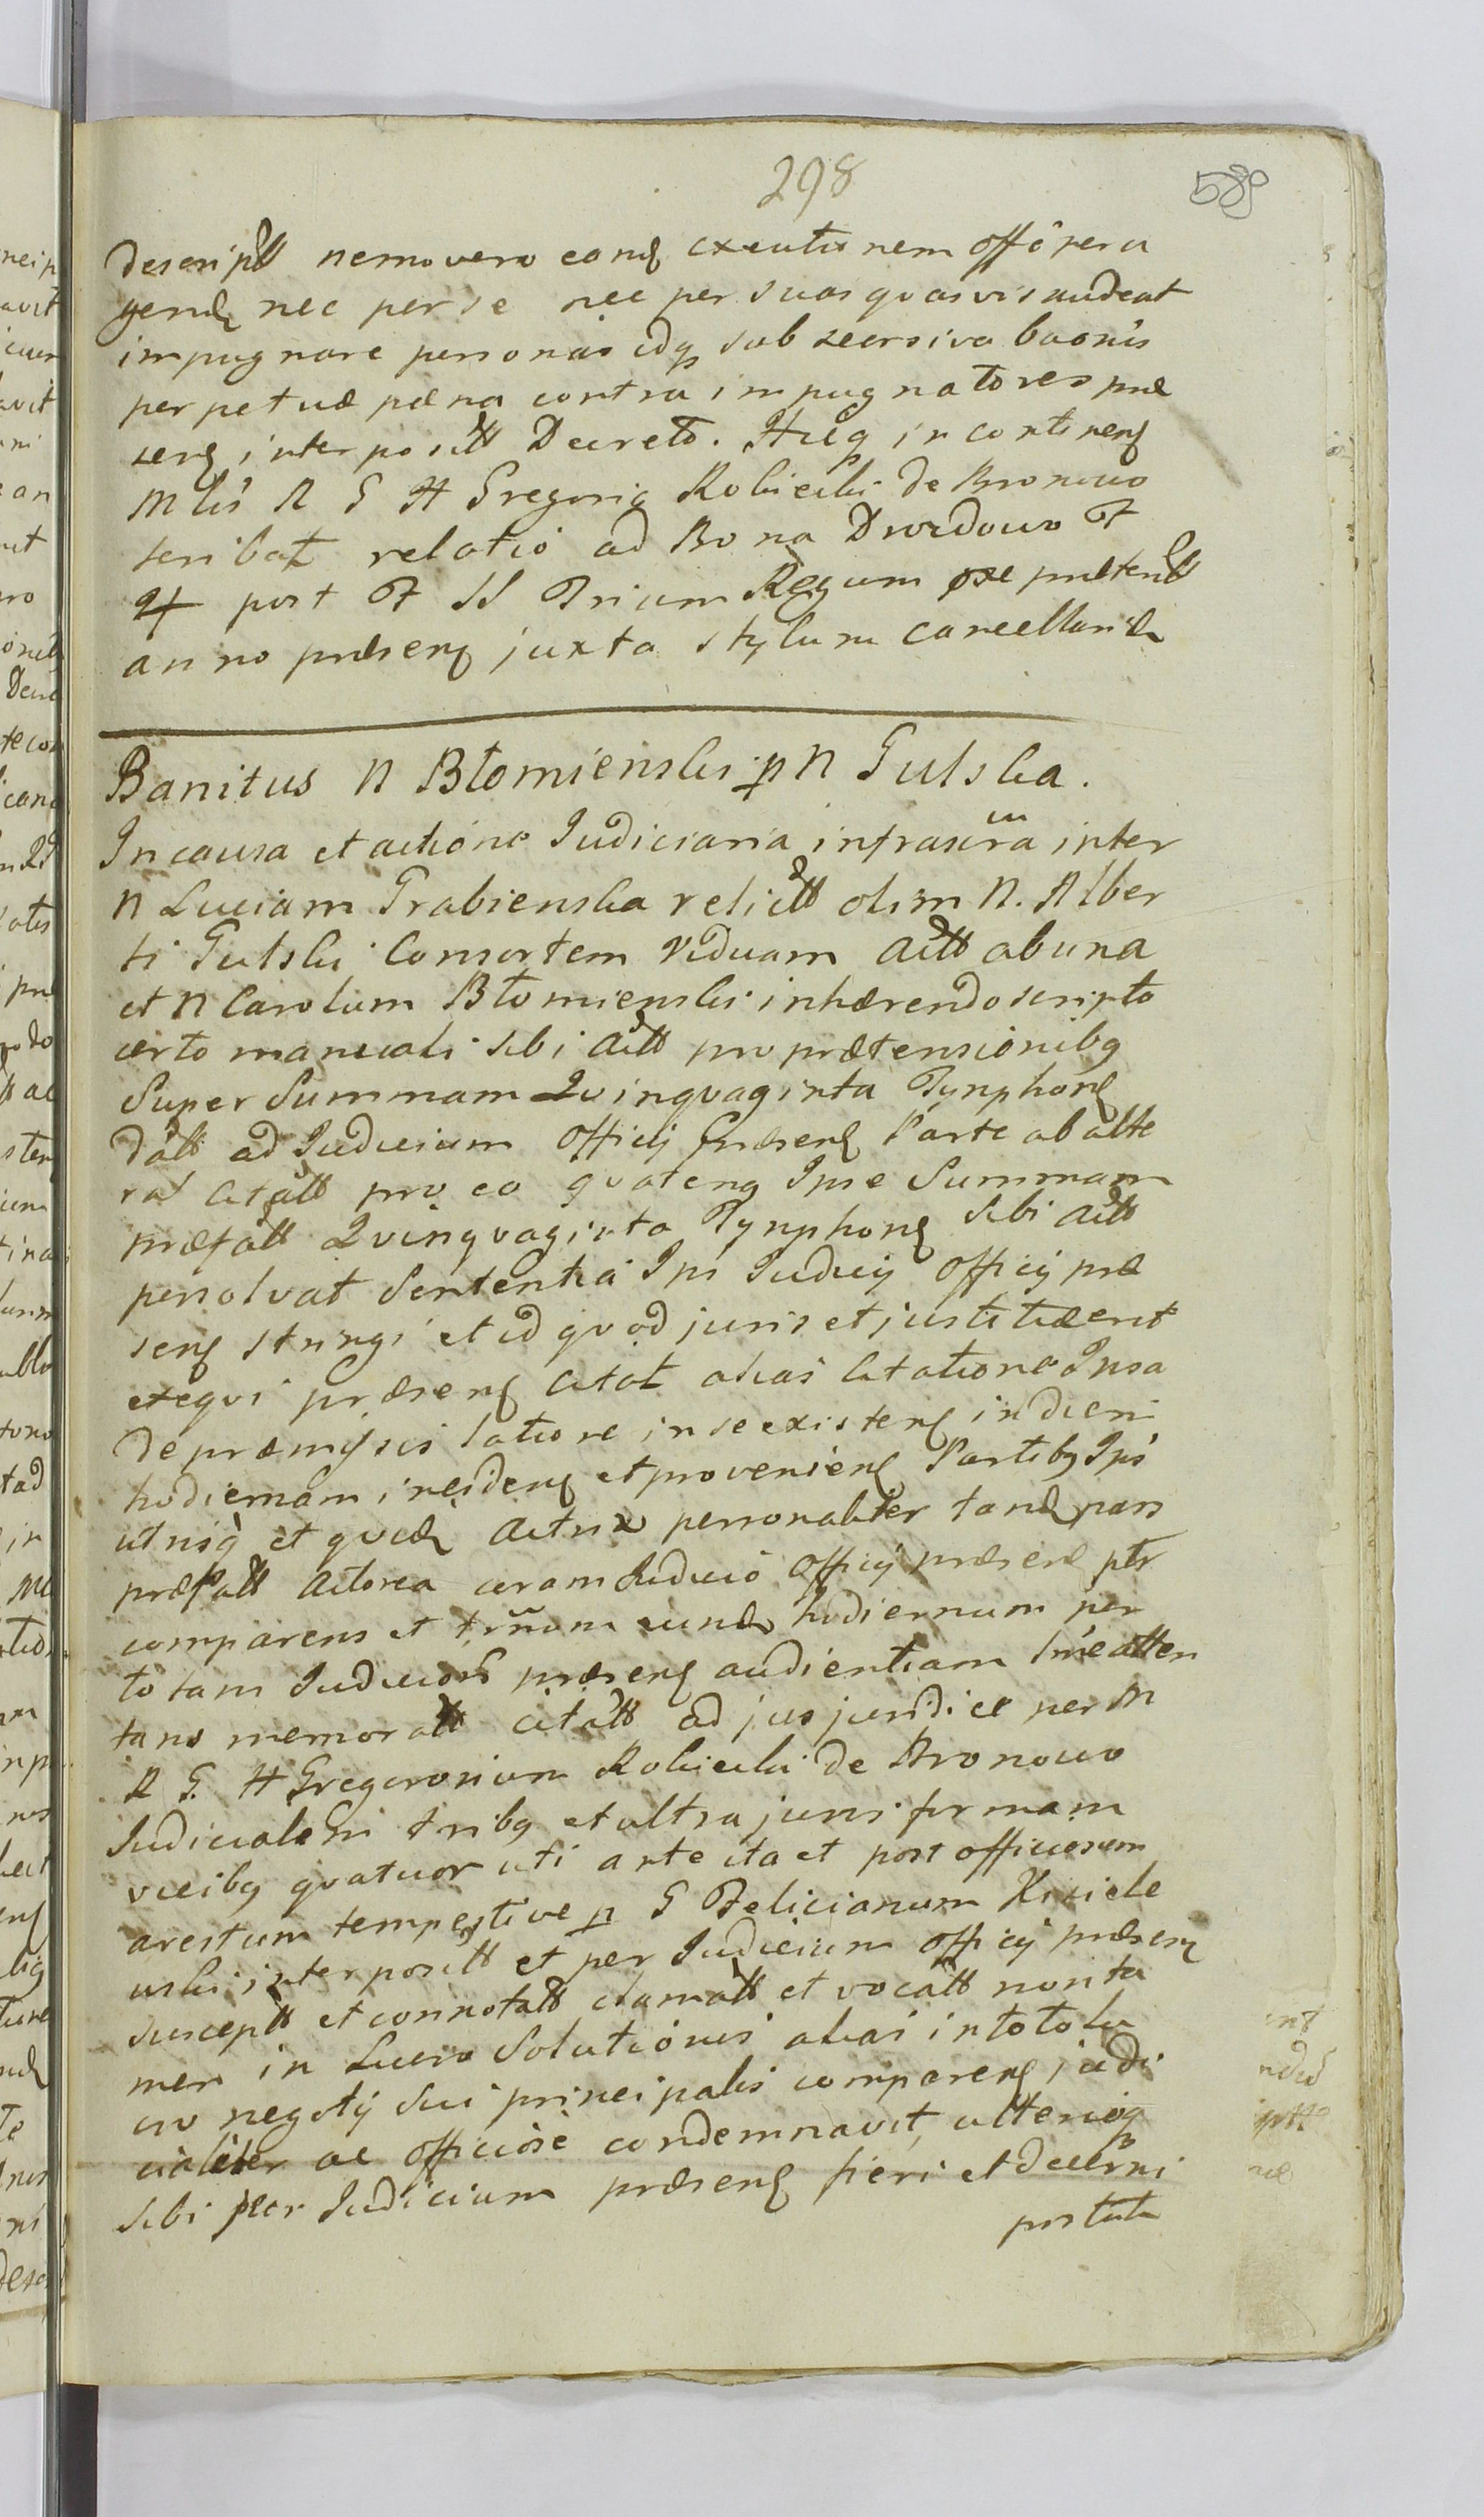 298
589
descriptt nemo vero eand executionem offo pera
gend nec per se nec per suas quasvis audeat
impugnare personas idq sub recursiva baonis
perpetuæ pæna contra impugnatores præ
sens interpositt Decreto. Hucq in continens
Mlis R G H Gregorig Robiecki de Bronowo
scribat relatio ad Bona Drozdowo F
4 post F SS Trium Regum pxe prætentt
anno præsens juxta stylum Cancellariæ
Banitus N Błomienski p N Gutska.
In causa et actione Judiciaria infrascra inter
N Luciam Grabienska relictt olim N. Alber
ti Gutski Consortem Viduam Actt ab una
et N Carolum Błomienski inhærendo scripto
certo manuali sibi Actt pro prætensionibq
Super Summam Quinquaginta Tynphons
datt ad Judicium Officij Præsens Parte ab alte
ra Citatt pro eo quatenq Ipse Summam
præfatt Quinquaginta Tynphons sibi Actt
persolvat Sententia Ipsi Judicij Officij præ
sens stringi et id quod juris et justitiæ erit
exequi præsens Citat alias Citatione Ipsa
de præmissis latiore in se existens in diem
hodiernam incidens et proveniens Partibq Ipsi
utrisq et quid Actrix personaliter tand pars
præfatt Actorea coram Judicio Officij præsens ptr
comparens et trnum eund hodiernum per
totam Judicior præsens audientiam lme atten
tans memoratt Citatt ad jus juridice per M
R G. H Gregorium Robiecki de Bronowo
Judicialem tribq et ultra juris formam
vicibq quatuor uti ante ita et post officiosum
arestum tempestive p G Felicianum Kisiele
wski interpositt et per Judicium Officij præsens
susceptt et connotatt clamatt et vocatt non ta
men in Lucro Solutionis alias in toto lu
cro negotij sui principalis comparens judi
cialiter ac officiose condemnavit, ulteriusq
sibi per Judicium præsens fieri et decerni
postula